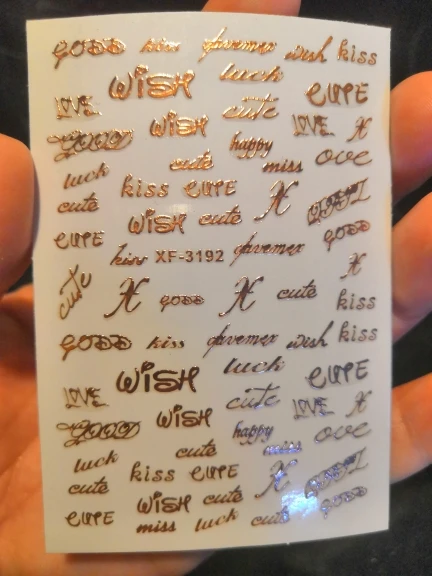 GOOD kiss wish kiss
WISH luck CUTE
LOVE WISH cute LOVE H
GOOD happy
cute miss ove
luck kiss CUTE H
cute WISH cute GOOD
CUTE kiss XF-3192
H
cute H GOOD H cute kiss
GOOD kiss wish kiss
WISH luck CUTE
LOVE WISH cute LOVE H
GOOD happy ove
cute miss
luck kiss CUTE H
cute WISH cute GOOD
CUTE miss luck cute